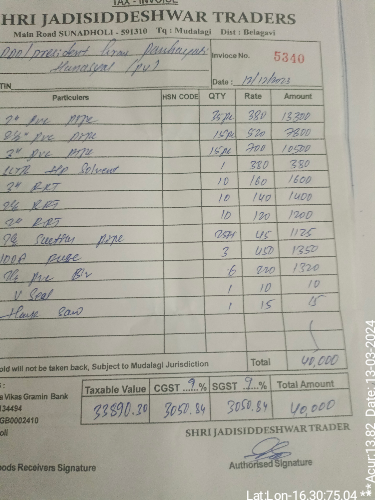 TAX - INVOICE
SHRI JADISIDDESHWAR TRADERS
Main Road SUNADHOLI - 591310 Tq : Mudalagi Dist : Belagavi
PDO/president Grama Panchayati
Hunasyal (PU)
Invoice No. 5340
Date : 12/12/2023
TIN
Particulars HSN CODE QTY Rate Amount
2" pvc pipe 35pc 380 13300
2½" pvc pipe 15pc 520 7800
3" pvc pipe 15pc 700 10500
Solvent 1 380 380
3" RRT 10 160 1600
2½ RRT 10 140 1400
2" RRT 10 120 1200
pipe 25H 45 1125
100A 3 450 1350
pvc 6 220 1320
V Seal 1 10 10
Saw 1 15 15
old will not be taken back, Subject to Mudalagi Jurisdiction Total 40,000
Taxable Value CGST 9 % SGST 9 % Total Amount
33890.30 3050.84 3050.84 40,000
a Vikas Gramin Bank
134494
GB0002410
oli
SHRI JADISIDDESHWAR TRADER
oods Receivers Signature
Authorised Signature
Lat:Lon-16.30:75.04 ***Acur:13.82 Date:13-03-2024